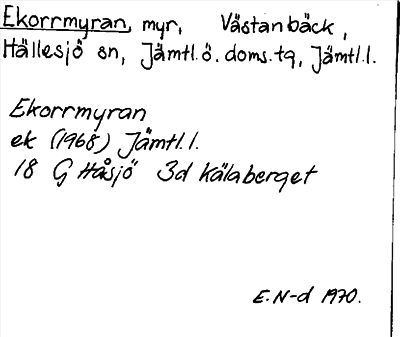 Ekorrmyran, myr, Västanbäck,
Hällesjö sn, Jämtl.ö. doms.tg, Jämtl.l.
Ekorrmyran
ek (1968) Jämtl.l.
18 G Håsjö 3d Kälaberget
E.N-d 1970.